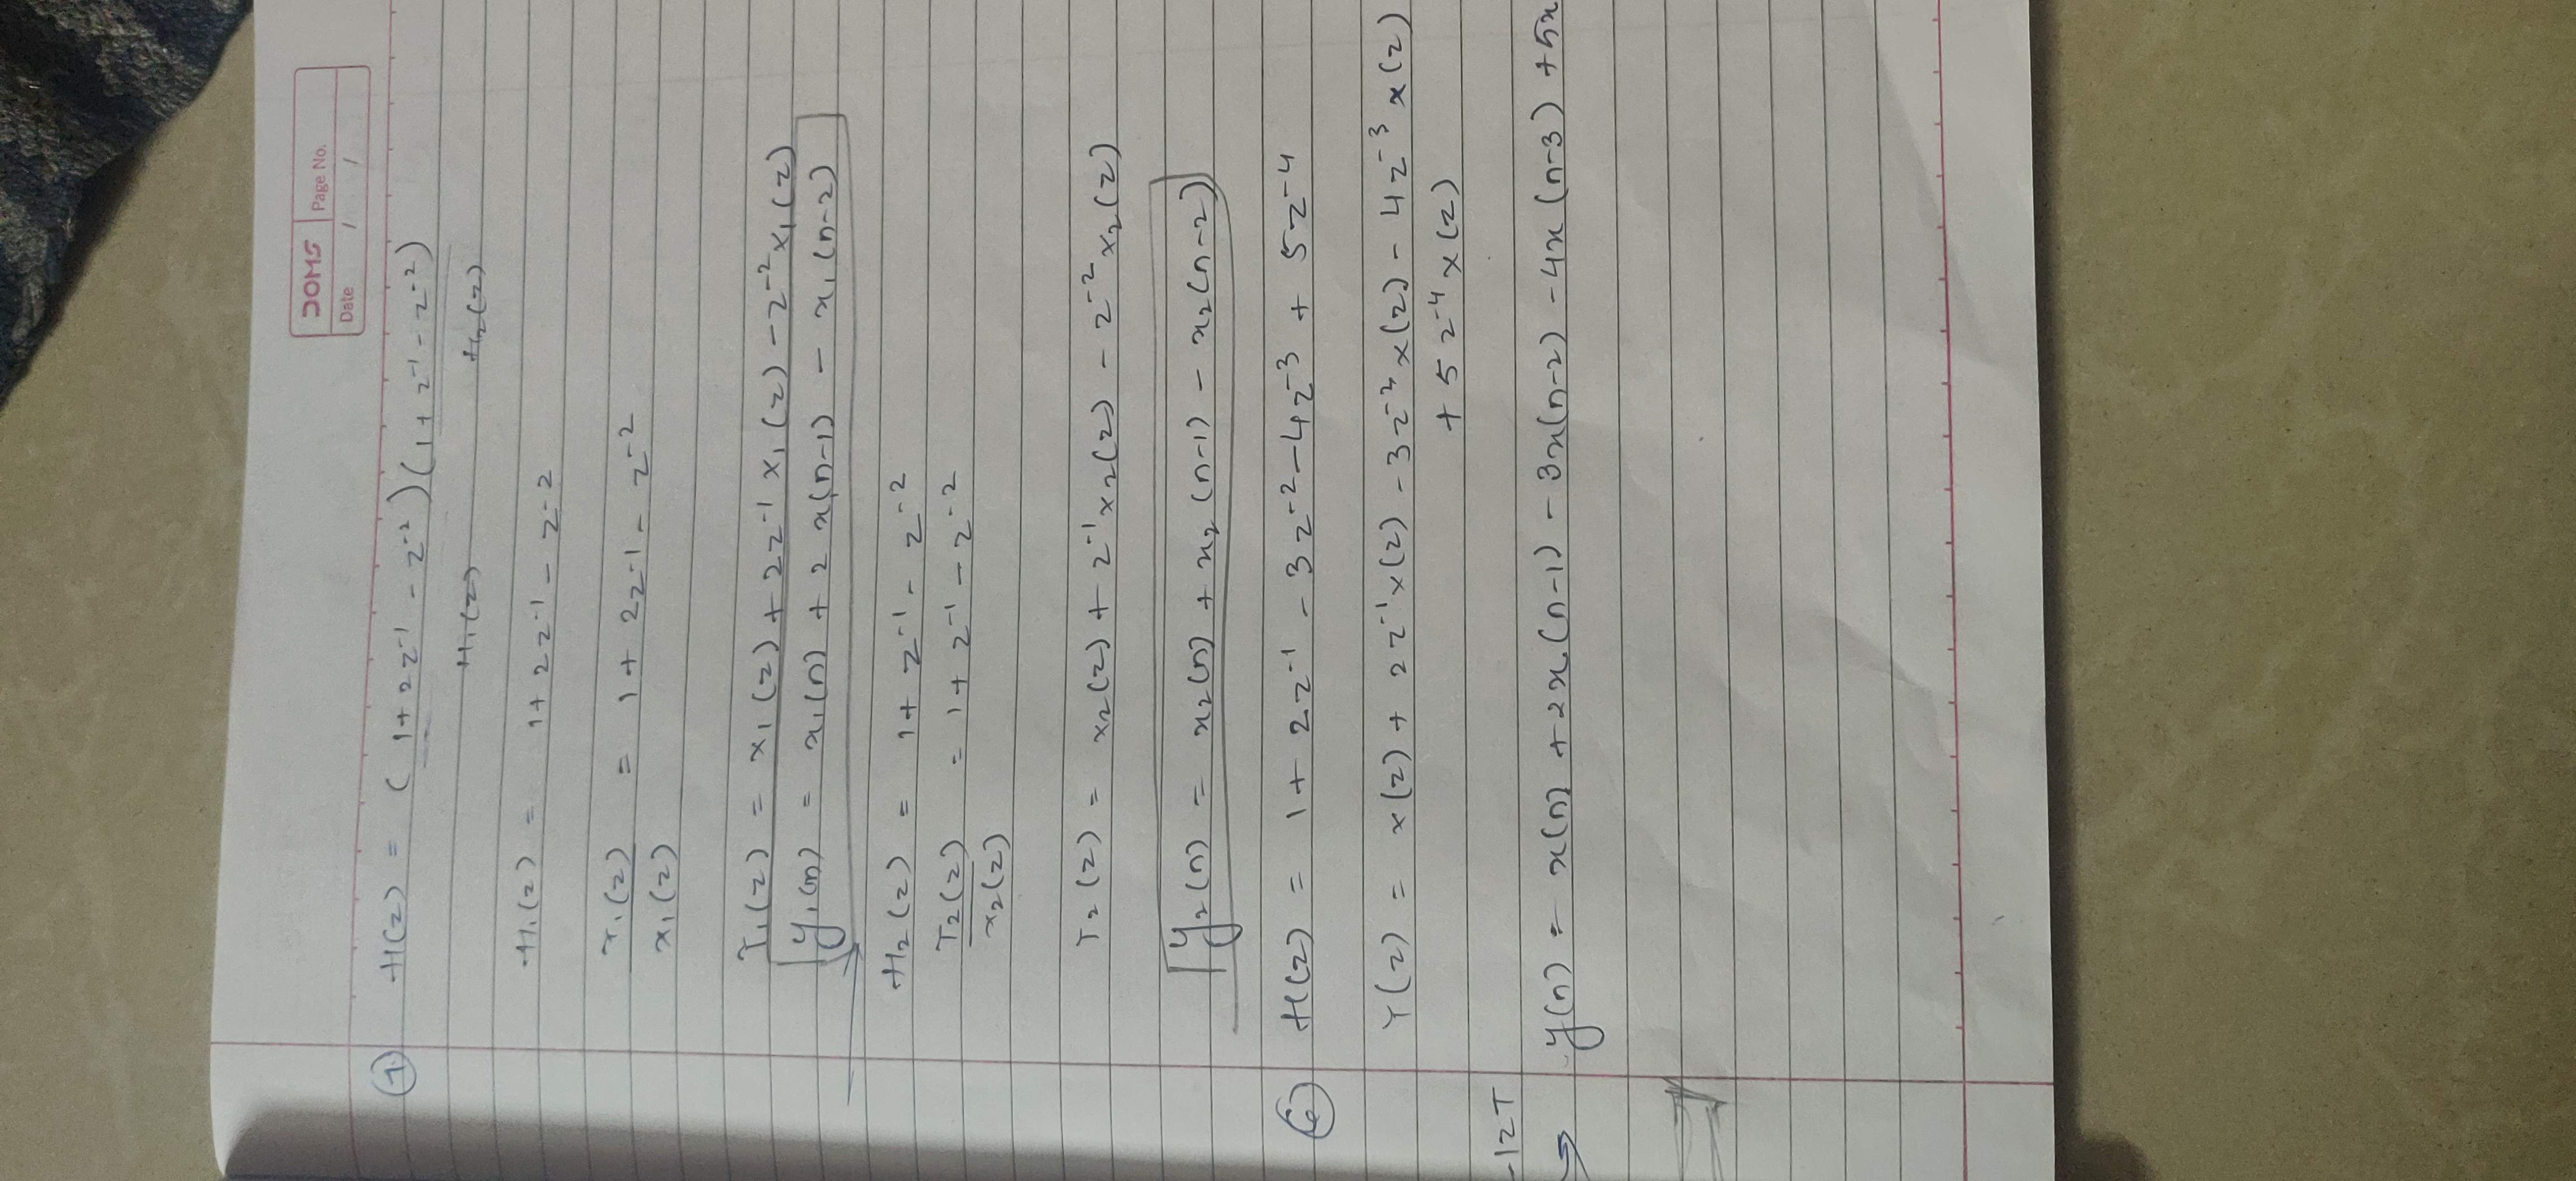 DOMS Page No.
Date / /
7. H(z) = (1+2z⁻¹ - z⁻²)(1+z⁻¹ - z⁻²)
H₁(z) H₂(z)
H₁(z) = 1+2z⁻¹ - z⁻²
Y₁(z) = 1+2z⁻¹ - z⁻²
x₁(z)
Y₁(z) = x₁(z) + 2z⁻¹ x₁(z) - z⁻² x₁(z)
y₁(n) = x₁(n) + 2 x₁(n-1) - x₁(n-2)
H₂(z) = 1+z⁻¹ - z⁻²
Y₂(z) = 1+z⁻¹ - z⁻²
x₂(z)
Y₂(z) = x₂(z) + z⁻¹x₂(z) - z⁻² x₂(z)
y₂(n) = x₂(n) + x₂(n-1) - x₂(n-2)
6 H(z) = 1+2z⁻¹ - 3z⁻² - 4z⁻³ + 5z⁻⁴
Y(z) = x(z) + 2z⁻¹x(z) - 3z⁻² x(z) - 4z⁻³ x(z)
+ 5z⁻⁴ x(z)
IZT
y(n) = x(n) + 2x(n-1) - 3x(n-2) - 4x(n-3) + 5x